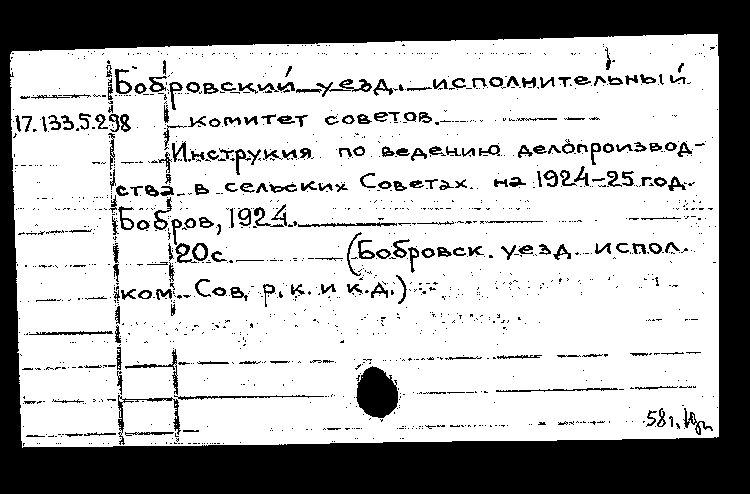 Бобровский уезд. исполнительный
17.133.5.298 комитет советов.
Инструкия по ведению делопроизвод-
ства в сельских Советах на 1924-25 год.
Бобров, 1924.
20с. (Бобровск. уезд. испол.
ком. Сов. р. к. и к.д.)
58г.